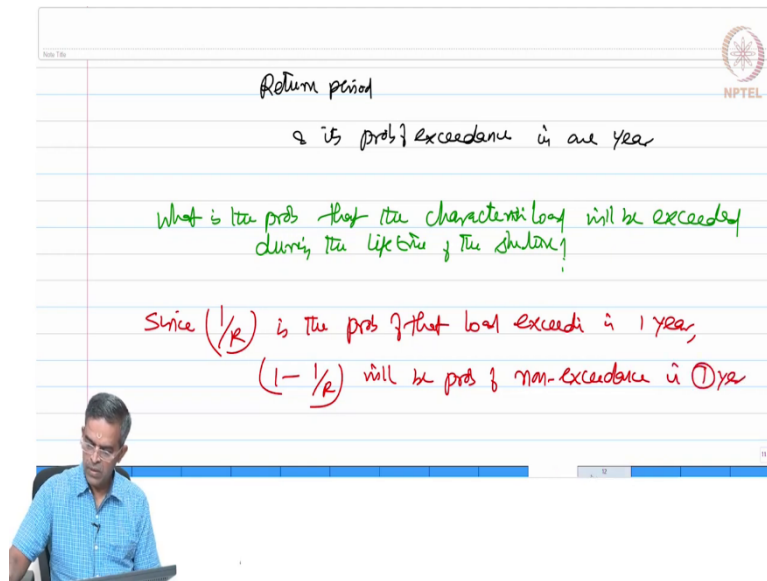 Note Title
NPTEL
Return period
& its prob of exceedance in one year
What is the prob that the characteristic load will be exceeded
during the life time of the structure?
Since (1/R) is the prob of that load exceedi in 1 year,
(1 - 1/R) will be prob of non-exceedance in ① year
12